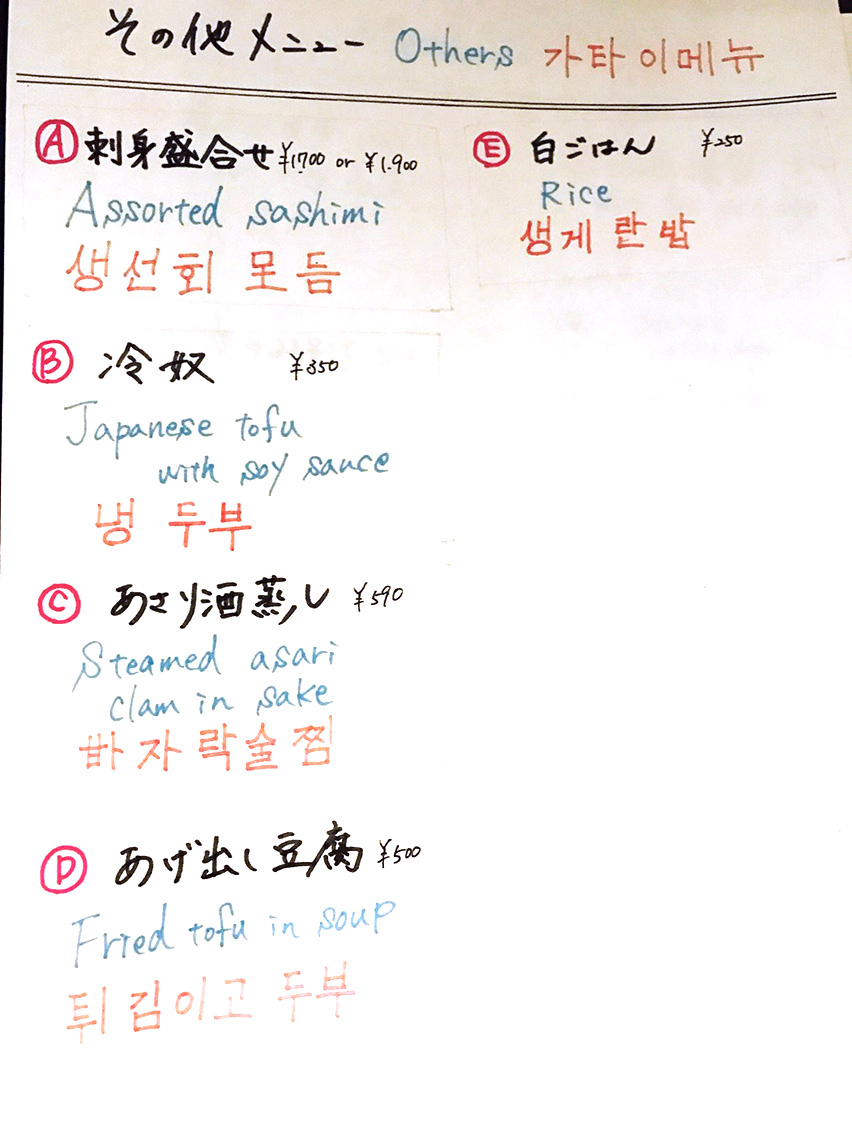 その他メニュー Others 가타이메뉴
Ⓐ 刺身盛合せ ¥1,700 or ¥1,900
Assorted sashimi
생선회 모듬
Ⓑ 冷奴 ¥350
Japanese tofu
with soy sauce
냉 두부
Ⓒ あさり酒蒸し ¥590
Steamed asari
clam in sake
빠자락술찜
Ⓓ あげ出し豆腐 ¥500
Fried tofu in soup
튀김이고 두부
Ⓔ 白ごはん ¥250
Rice
생게란밥